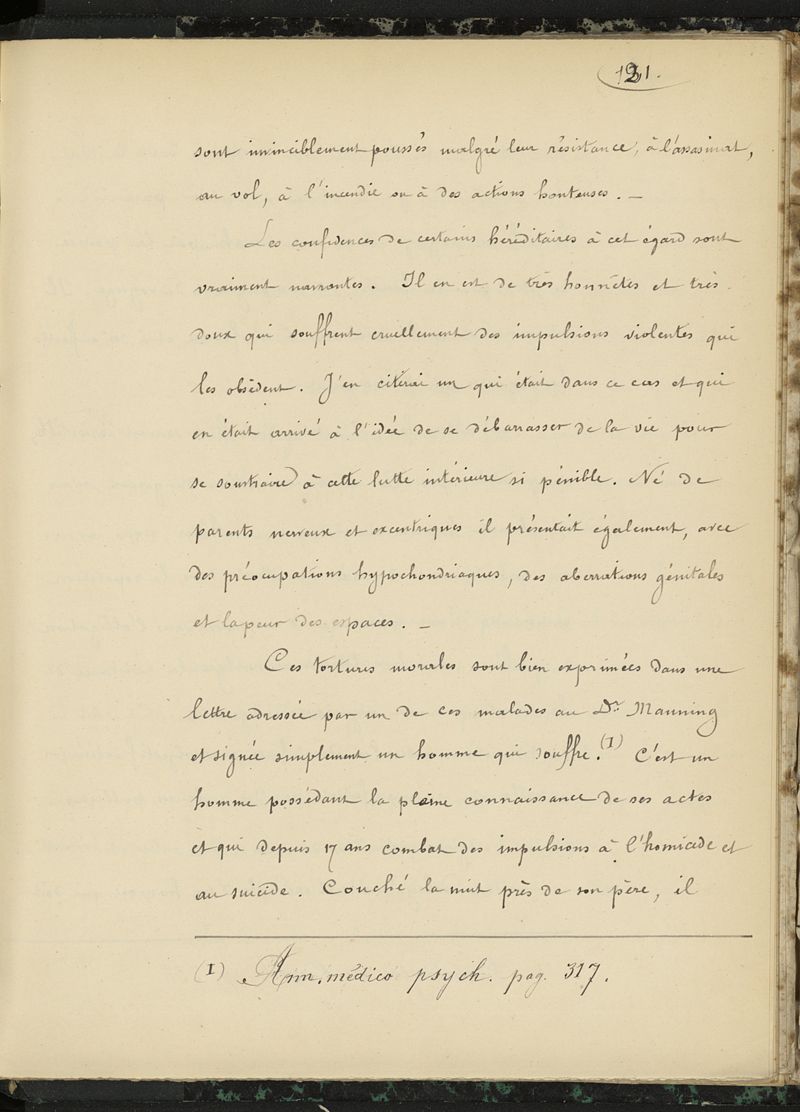 121.
sont invinciblement poussés malgré leur résistance, à l'assasinat,
au vol, à l'incendie ou à des actions honteuses. —
Les confidences de certains héréditaires à cet égard sont
vraiment navrantes. Il en est de très honnêtes et très
doux qui souffrent cruellement des impulsions violentes qui
les obsèdent. J'en citerai un qui était dans ce cas et qui
en était arrivé à l'idée de se débarrasser de la vie pour
se soustraire à cette lutte intérieure si pénible. Né de
parents nerveux et excentriques il présentait également, avec
des préocupations hypochondriaques, des aberrations génitales
et la peur des espaces. —
Ces tortures morales sont bien exprimées dans une
lettre adressée par un de ces malades au Dr. Manning
et signée simplement un homme qui souffre.(1) C'est un
homme possédant la pleine connaissance de ses actes
et qui depuis 17 ans combat des impulsions à l'homicide et
au suicide. Couché la nuit près de son père, il
(1) Ann. médico psych. pag. 317.